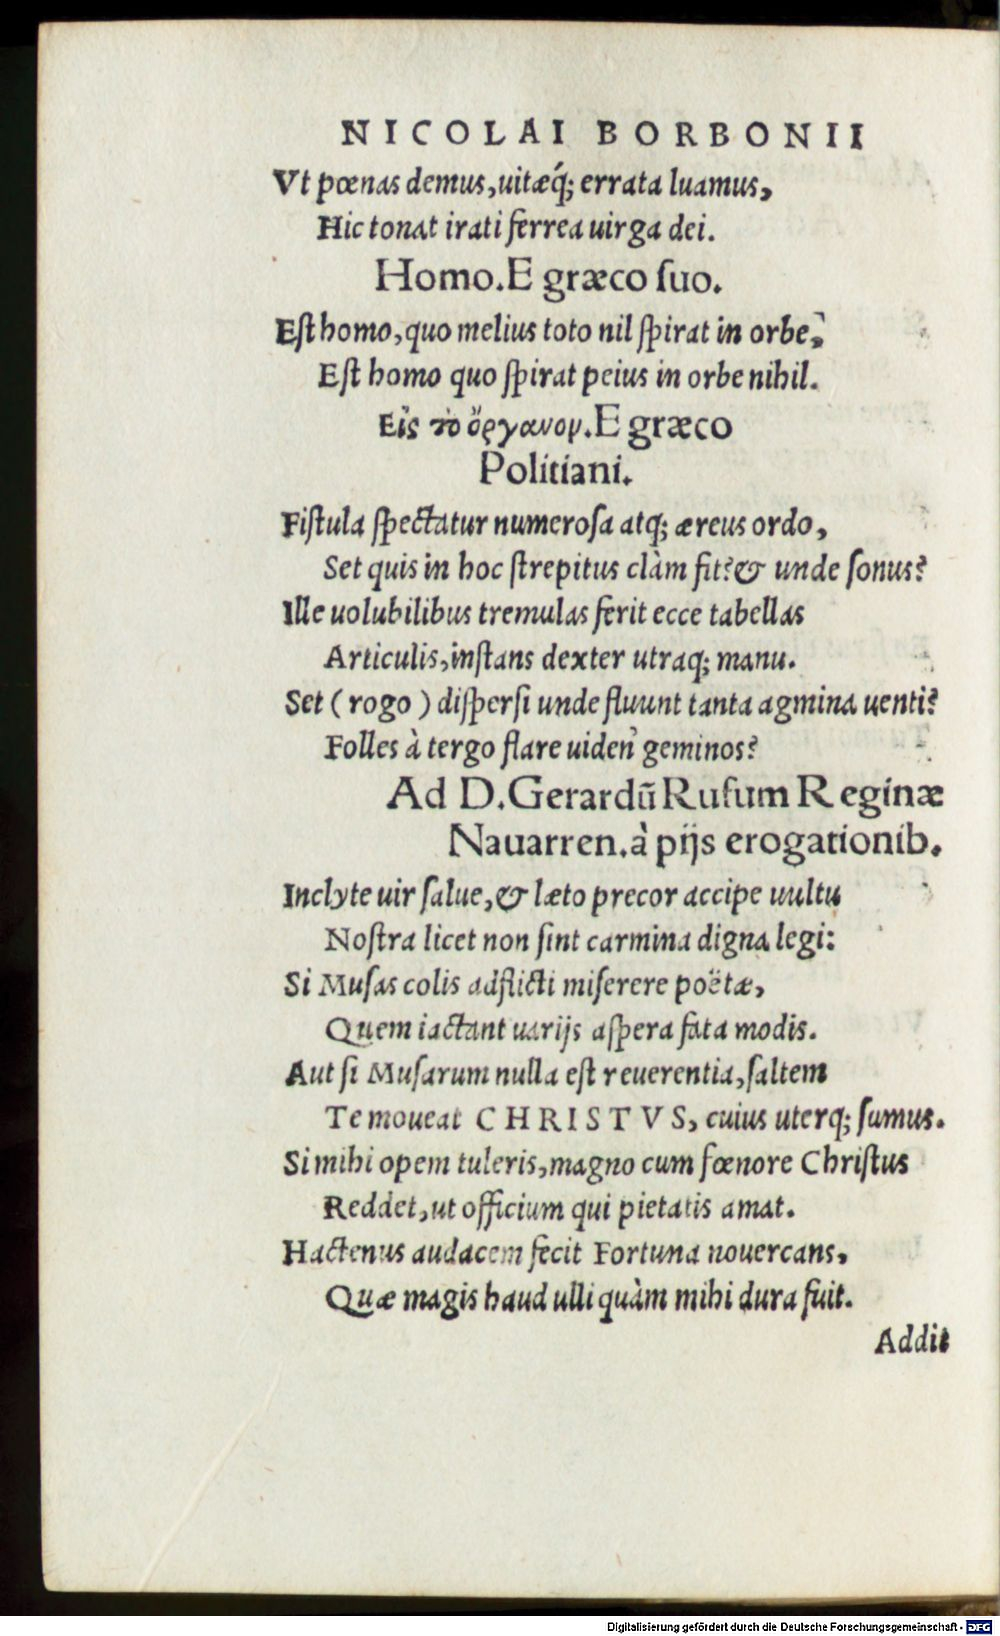 NICOLAI BORBONII
Vt pœnas demus, uitæq́; errata luamus,
Hic tonat irati ferrea uirga dei.
Homo. E græco ſuo.
Eſt homo, quo melius toto nil ſpirat in orbe,
Eſt homo quo ſpirat peius in orbe nihil.
Εἰς τὸ ὄργανον. E græco
Politiani.
Fiſtula ſpectatur numeroſa atq; æreus ordo,
Set quis in hoc ſtrepitus clàm fit? & unde ſonus?
Ille uolubilibus tremulas ferit ecce tabellas
Articulis, inſtans dexter utraq; manu.
Set ( rogo ) diſperſi unde fluunt tanta agmina uenti?
Folles à tergo flare uiden' geminos?
Ad D. Gerardū Rufum Reginæ
Nauarren. à pijs erogationib.
Inclyte uir ſalue, & læto precor accipe uultu
Noſtra licet non ſint carmina digna legi:
Si Muſas colis adflicti miſerere poëtæ,
Quem iactant uarijs aſpera fata modis.
Aut ſi Muſarum nulla eſt reuerentia, ſaltem
Te moueat CHRISTVS, cuius uterq; ſumus.
Si mihi opem tuleris, magno cum fœnore Chriſtus
Reddet, ut officium qui pietatis amat.
Hactenus audacem fecit Fortuna nouercans,
Quæ magis haud ulli quàm mihi dura fuit.
Addit
Digitalisierung gefördert durch die Deutsche Forschungsgemeinschaft - DFG